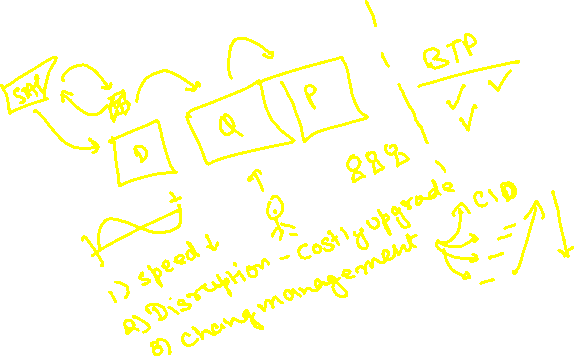 SAP
BTP
D
Q
P
1) speed ↓
2) Disruption - costly upgrade
3) Chang management
CID